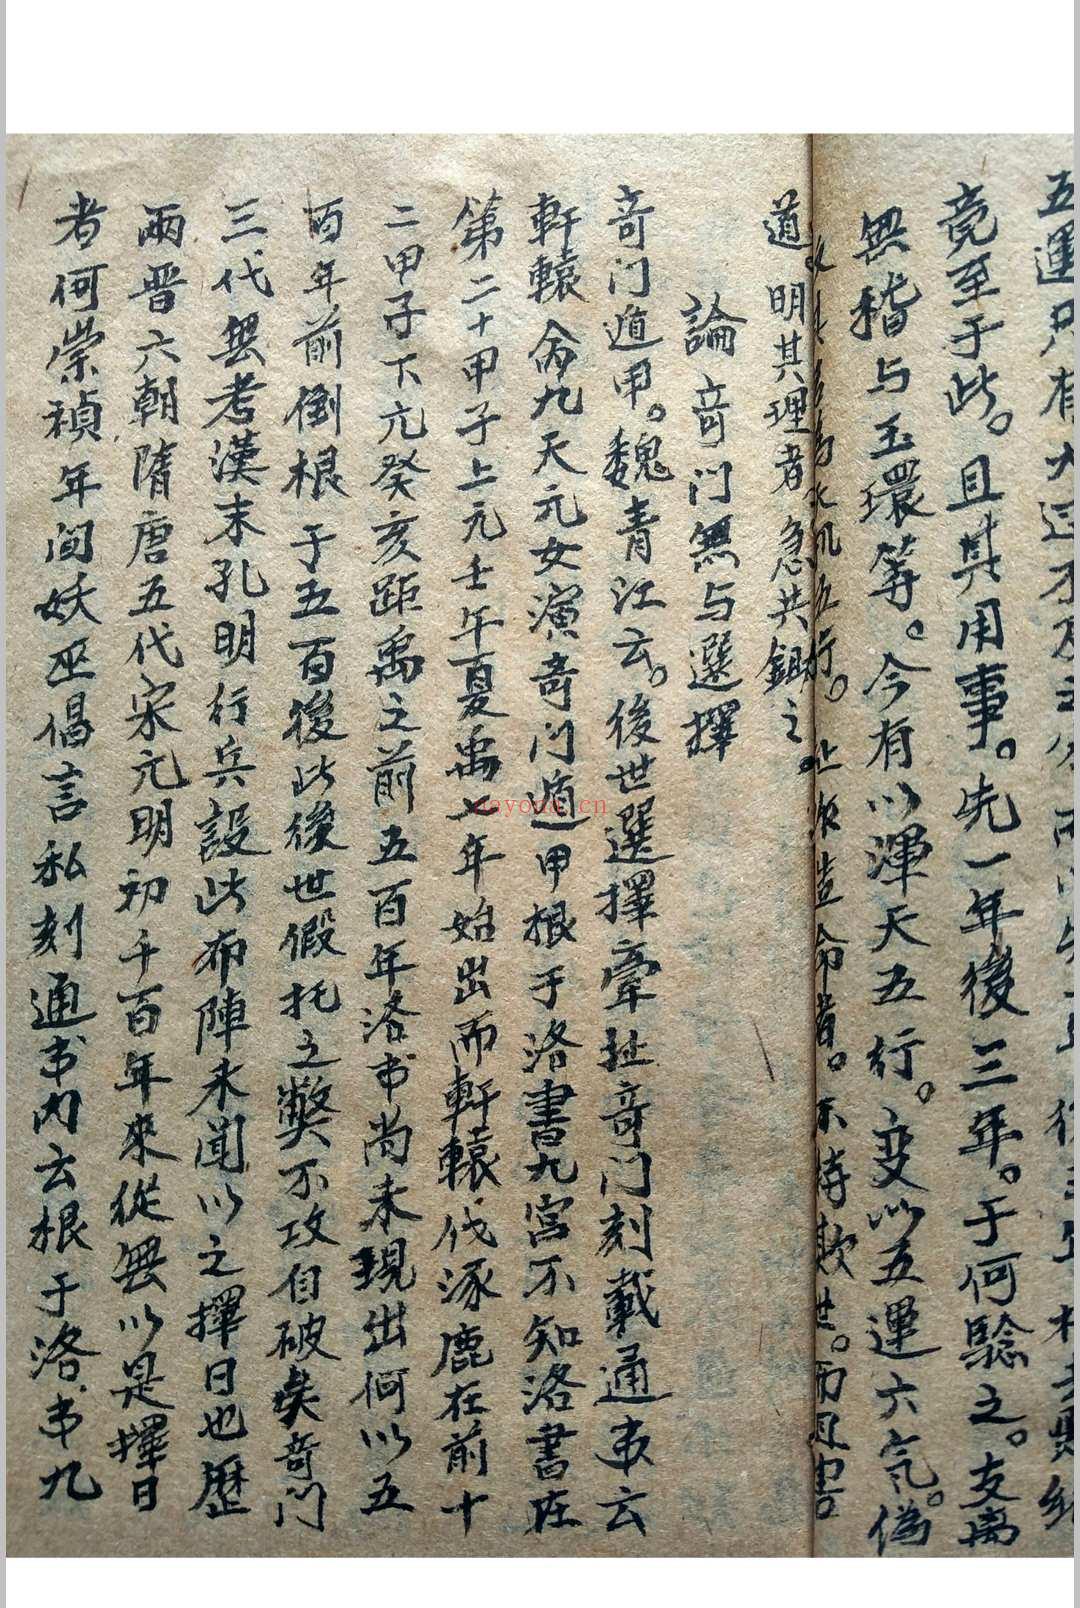 五運只有大運不及之分
竟至于此。且其用事。先一年後三年。于何驗之。支离
無稽与玉環等。今有以渾天五行。变以五運六气。偽
五行。造命者。不待欺世。而
道。明其理者急共鋤之。
論竒门無与選擇
竒门遁甲。魏青江云。後世選擇牽扯竒门刻載通书云
軒轅命九天元女演竒门遁甲根于洛書九宫不知洛書在
第二十甲子上元壬午夏禹七年始出而軒轅伐涿鹿在前十
二甲子下元癸亥距禹之前五百年洛书尚未現出何以五
百年前倒根于五百後此後世假托之弊不攻自破矣竒门
三代無考漢末孔明行兵設此布陣未闻以之擇日也歷
兩晋六朝隋唐五代宋元明初千百年來從無以是擇日
者何崇禎年间妖巫倡言私刻通书内云根于洛书九
nayona.cn